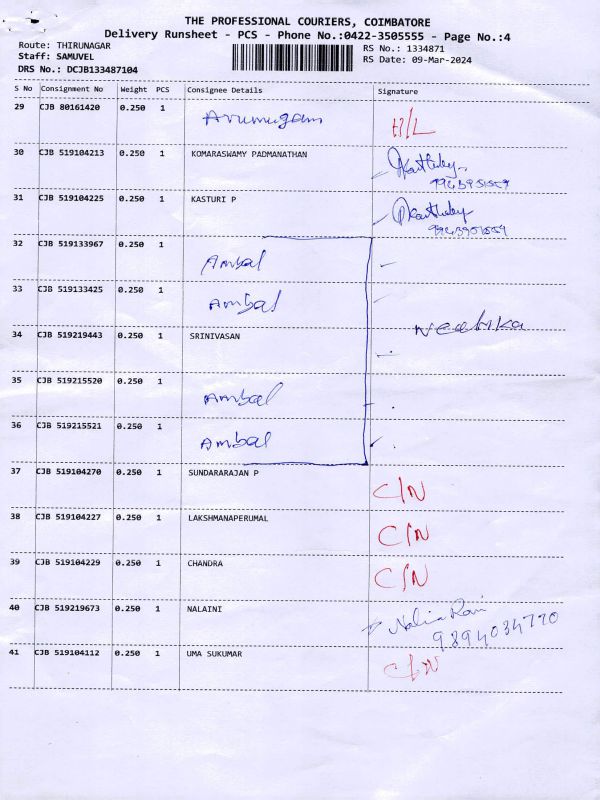 THE PROFESSIONAL COURIERS, COIMBATORE
Delivery Runsheet - PCS - Phone No.:0422-3505555 - Page No.:4
Route: THIRUNAGAR RS No.: 1334871
Staff: SAMUVEL RS Date: 09-Mar-2024
DRS No.: DCJB133487104
S No Consignment No Weight PCS Consignee Details Signature
29 CJB 80161420 0.250 1 Arumugam H/L
30 CJB 519104213 0.250 1 KOMARASWAMY PADMANATHAN
31 CJB 519104225 0.250 1 KASTURI P
32 CJB 519133967 0.250 1 Ambal
33 CJB 519133425 0.250 1 Ambal
34 CJB 519219443 0.250 1 SRINIVASAN
35 CJB 519215520 0.250 1 Ambal
36 CJB 519215521 0.250 1 Ambal
37 CJB 519104270 0.250 1 SUNDARARAJAN P C/N
38 CJB 519104227 0.250 1 LAKSHMANAPERUMAL C/N
39 CJB 519104229 0.250 1 CHANDRA C/N
40 CJB 519219673 0.250 1 NALAINI
9894034770
41 CJB 519104112 0.250 1 UMA SUKUMAR C/N